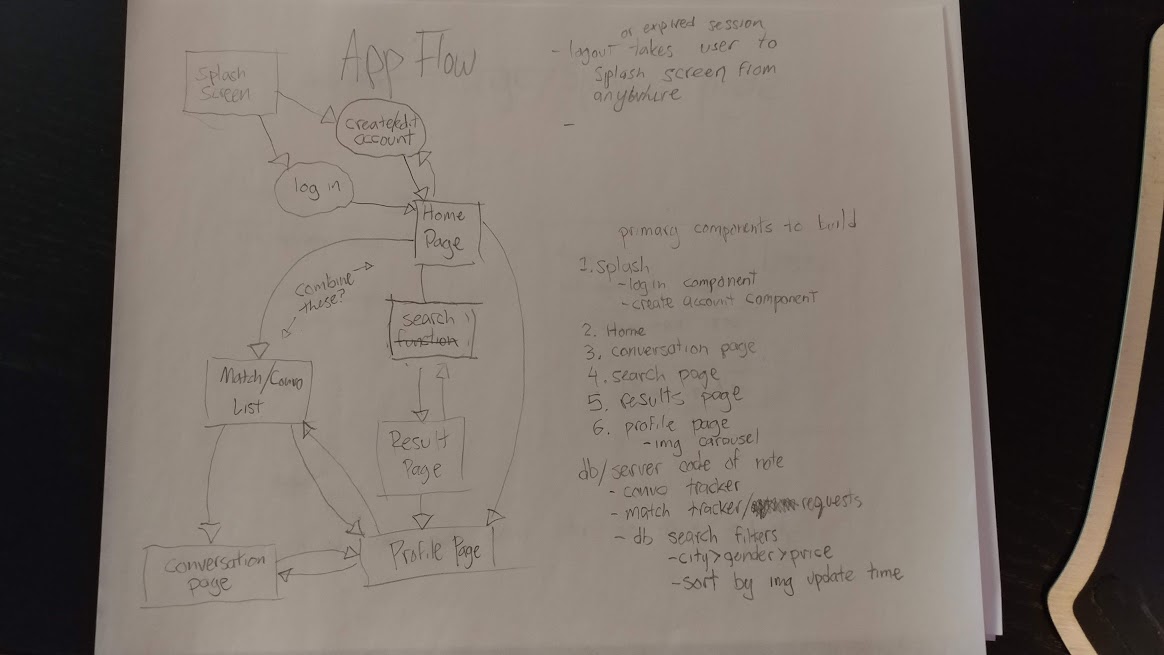 App Flow
Splash
Screen
create/edit
account
log in
Home
Page
combine
these?
search
function
Match/Convo
List
Result
Page
Conversation
page
Profile Page
or expired session
- logout takes user to
splash screen from
anywhere
-
primary components to build
1. splash
- log in component
- create account component
2. Home
3. conversation page
4. search page
5. results page
6. profile page
- img carousel
db/server code of note
- convo tracker
- match tracker/ requests
- db search filters
- city>gender>price
- sort by img update time